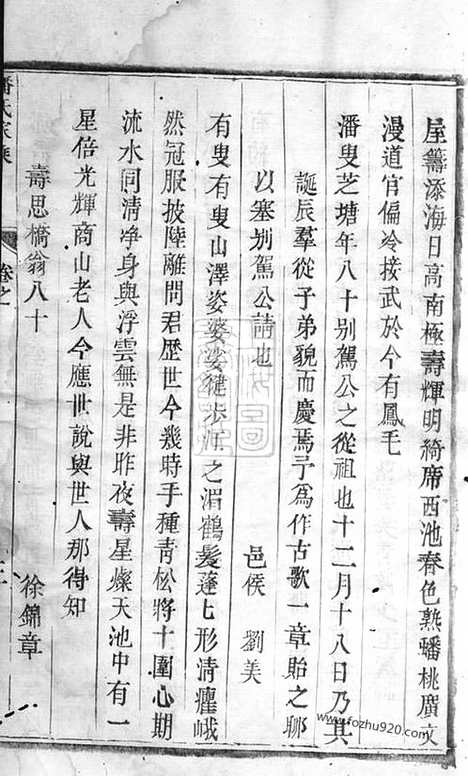 屋籌添海日高南極壽輝明綺席西池春色熟蟠桃廣文
漫道官偏冷接武於今有鳳毛
潘叟芝塘年八十别駕公之從祖也十二月十八日乃其
誕辰羣從子弟貌而慶焉予為作古歌一章貽之聊
以塞别駕公請也
邑侯 劉美
有叟有叟山澤姿婆娑健步江之湄鶴髮蓬七形清癯峨
然冠服披陸離問君歴世今幾時手種青松將十圍心期
流水同清净身與浮雲無是非昨夜壽星燦天池中有一
星倍光輝商山老人今應世說與世人那得知
壽思橋翁八十 徐錦章
潘氏家乘
卷之
www.fozhu920.com